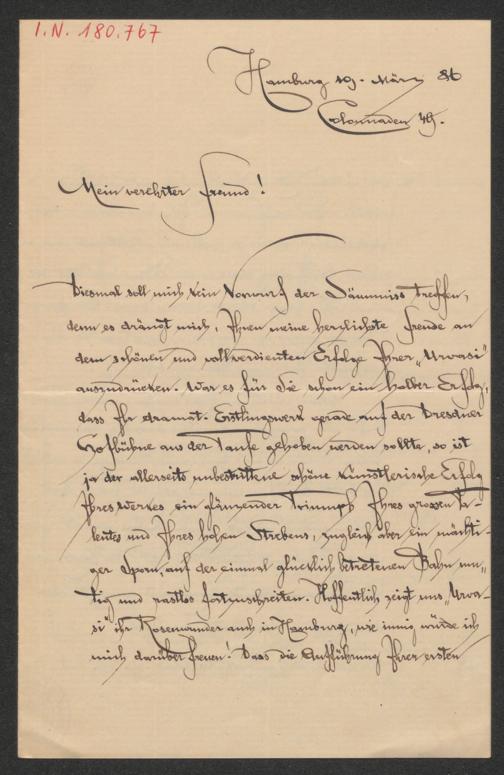 I.N. 180.767
Hamburg 19. März 86
Colonnaden 49.
Mein verehrter Freund!
Diesmal soll mich kein Vorwurf der Säumniss treffen,
denn es drängt mich, Ihnen meine herzlichste Freude an
dem schönen und vollverdienten Erfolge Ihrer „Urvasi"
auszudrücken. War es für Sie schon ein halber Erfolg,
dass Ihr dramat. Erstlingswerk gerade auf der Dresdner
Hofbühne aus der Taufe gehoben werden sollte, so ist
ja der allerseits unbestrittene schöne künstlerische Erfolg
Ihres Werkes ein glänzender Triumph Ihres grossen Ta-
lentes und Ihres hohen Strebens, zugleich aber ein mächti-
ger Sporn, auf der einmal glücklich betretenen Bahn mu„
tig und rastlos fortzuschreiten. Hoffentlich zeigt uns „Urva-
si" ihr Rosenwunder auch in Hamburg, wie innig würde ich
mich darüber freuen! Dass die Aufführung Ihrer ersten